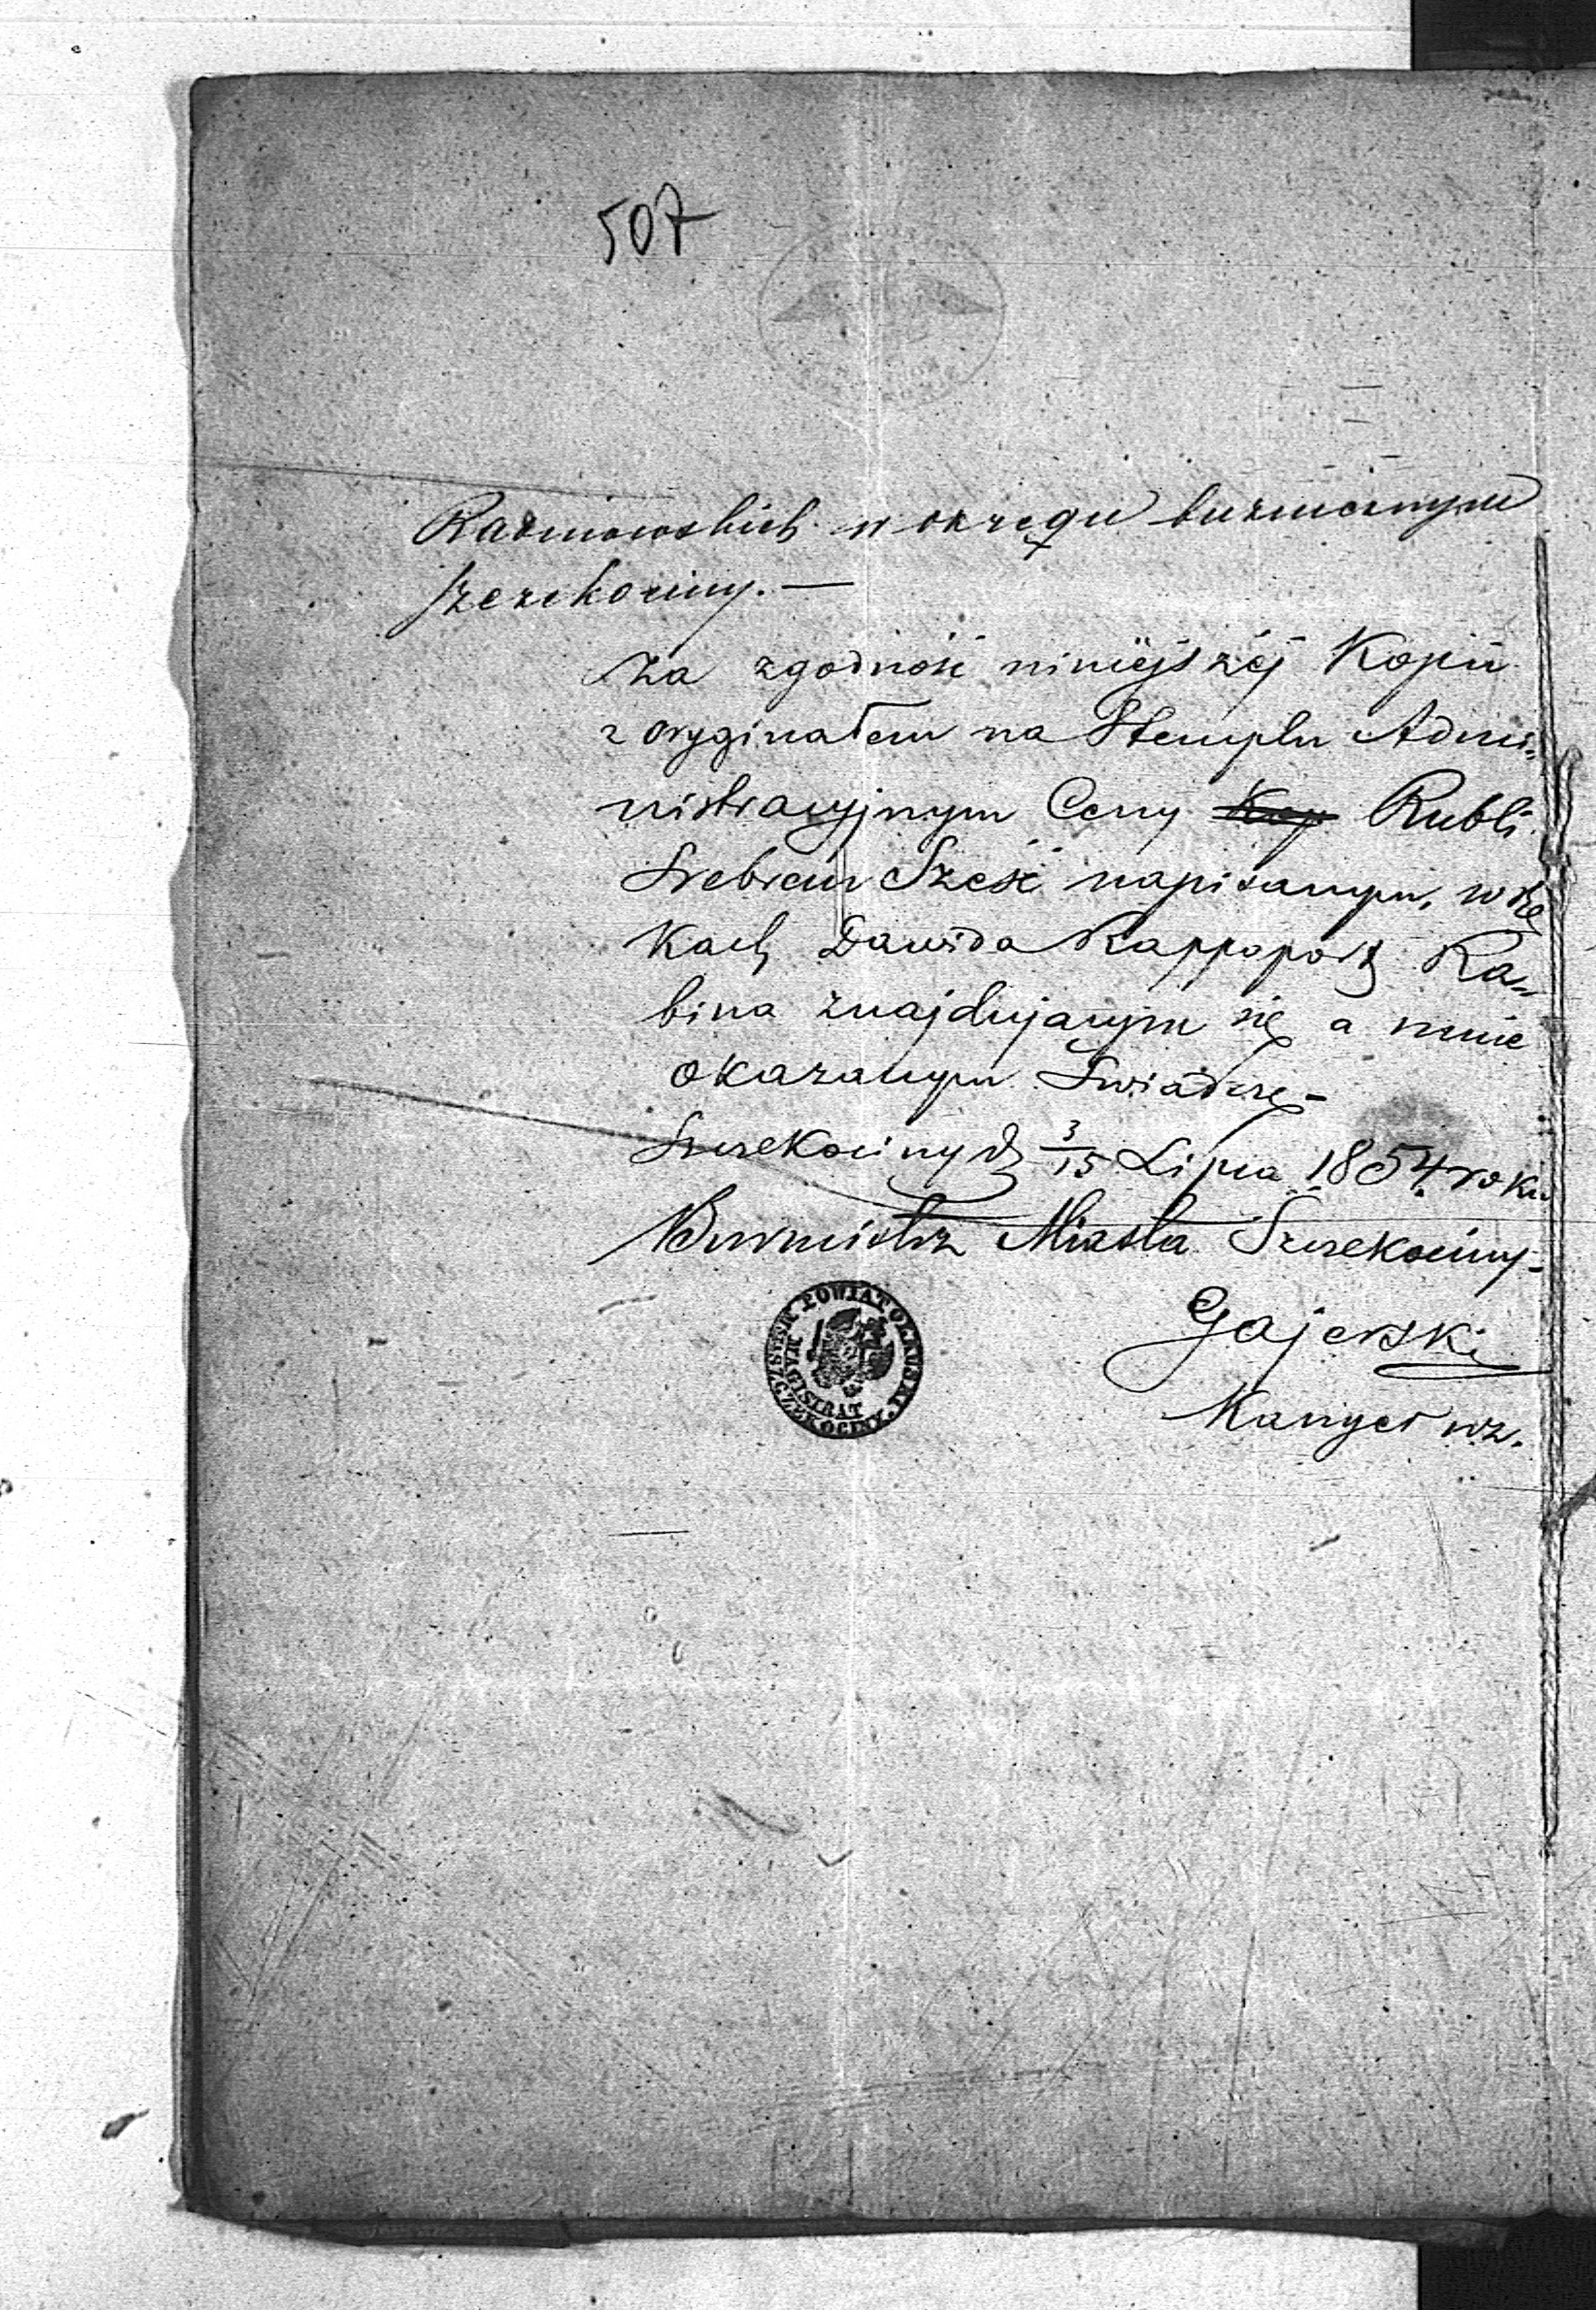 507
w okręgu bużnicznym
Szczekociny. —
Za zgodność niniejszéj Kopii
z oryginałem na Stemplu Admi„
nistracyjnym Ceny Kop Rubli
Srebrem Sześć napisanym, w rę
kach Dawida Rappoport Ra„
bina znajdującym się a mnie
okazanym Swiadczę –
Szczekociny d. 3/15 Lipca 1854 roku
Burmistrz Miasta Szczekociny –
Gajewski
POWIAT OLKUSKI.
MAGISTRAT
SZCZEKOCINY